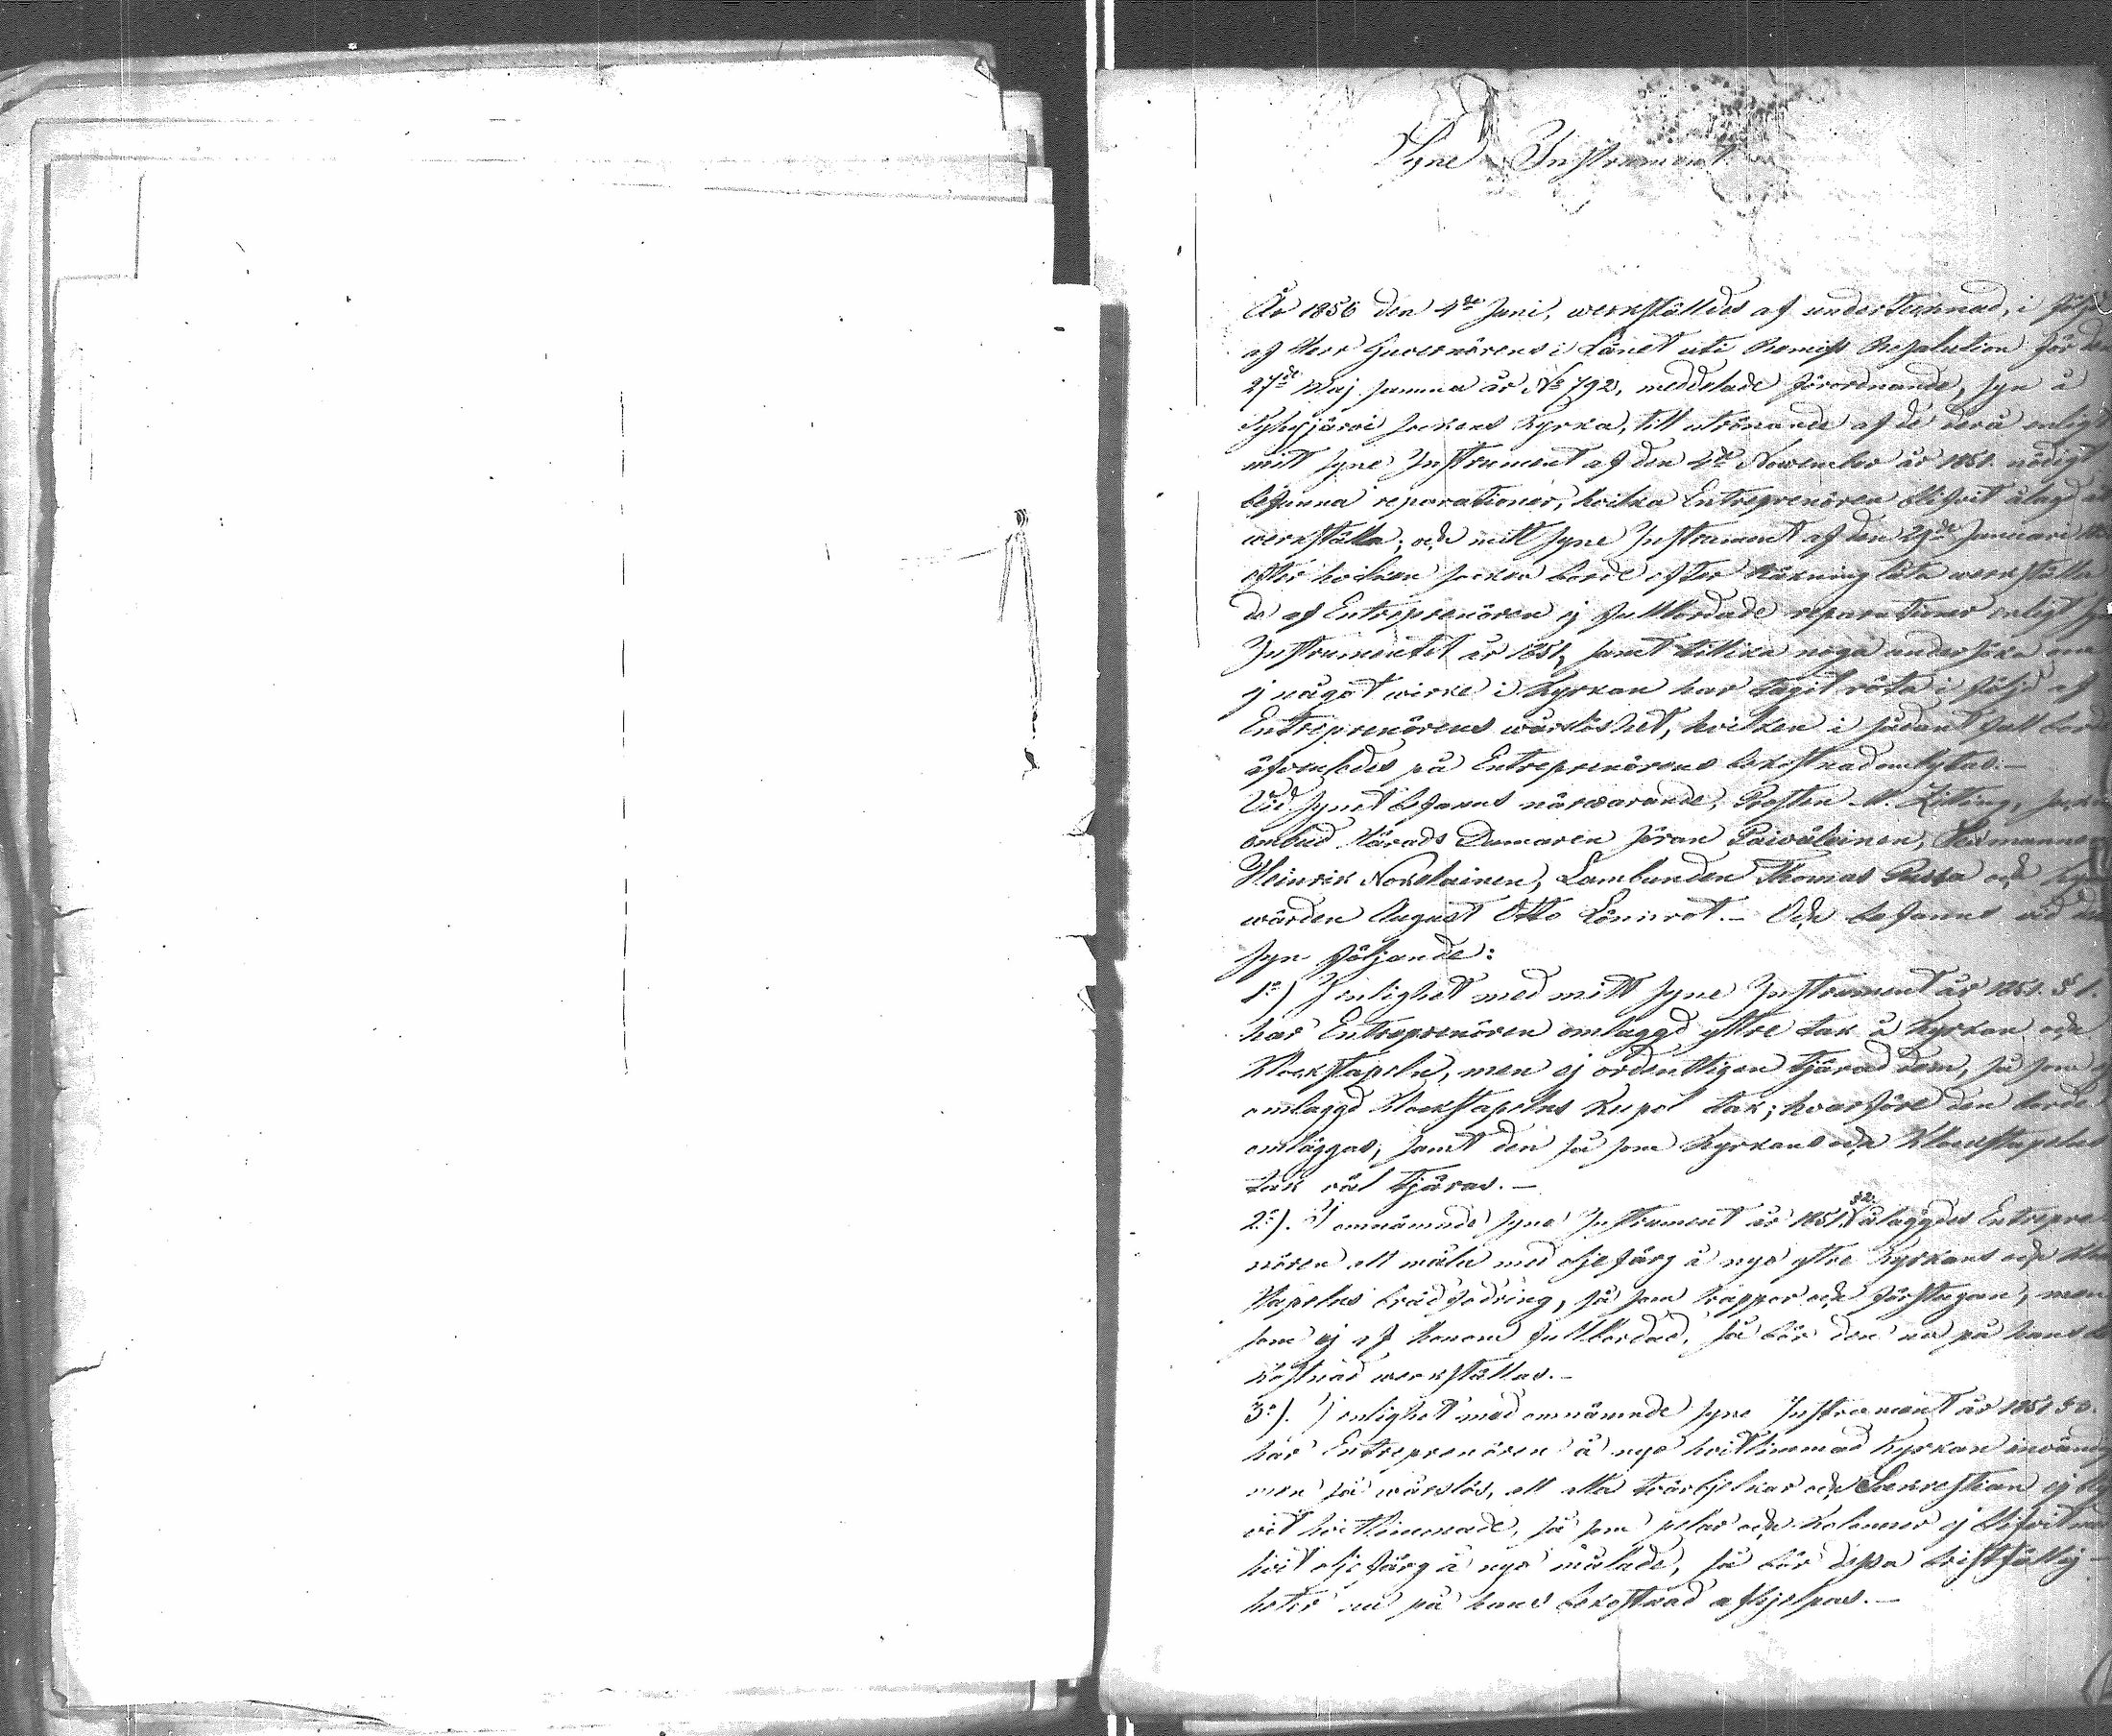 Syne Instrument.
År 1856 den 4de Juni, werkstälIdes af undertecknad, i följd
af Herr Guvernörens i Länet uti Remiss Resolution för den
27de Maj samma år No 792, meddelade förordnande, syn å
Pyhäjärvi Sockens Kyrka, till utrönande af de derå enligt
mitt Syne Instrument af den 4de November år 1851. nödigt
befunna reparationer, hvilka Entreprenören blifvit ålagd at
werkställa; och mitt Syne Instrument af den 29de Januari
efter hvilken Socken borde efter Räkning låta werkställa
de af Entreprenören ej fullbordade reparationer enligt Syne
Instrumentet år 1851, samt tillika noga undersöka om
ej något wirke i Kyrkan har tagit röta i följd af
Entreprenörens wårdslöshet, hvilken i sådant fall borde
äfvenledes på Entreprenörens bekostnad ombytas.—
Vid Synet befanns närvarande, Prosten Zitting, Sockne
ombud Härads Domaren Jöran Päiväleinen, Nämndemannen
Heinrik Nokelainen, Lambunden Thomas Russa och Kyrko
wärden August Otto Lönnrot.— Och befanns vid den
Syn följande:
1o) I enlighet med mitt Syne Instrument år 1851. § 1.
har Entreprenören omlaggd yttre tak å Kyrkan och
Klockstapeln, men ej ordentligen tjärad dem, så som ej
omlaggd Klockstapelns Kupol tak; hvarföre den borde
omläggas, samt den så som Kyrkans och Klockstapelns
tak väl tjäras.—
2o). I omnämnde Syne Instrument år 1851. § 2. ålaggdes Entrepre
nören att måla med oljefärg å nyo yttre Kyrkans och Klock
stapelns brädfodring, så som trappor och förstugan, men
som ej af honom fullbordad, så bör den nu på hans be
kostnad werkställas.—
3o). I enlighet med omnämnde Syne Instrument år 1851 § 3.
har Entreprenören å nyo hvitlimmad Kyrkan invändig
men så wårslös, att alla tvärbjelkar och Sakrestian ej blif
vit hvitlimmade, så som pelar och Kolonner ej blifvit med
hvit olje färg å nyo målade, så bör dessa bristfällig-
heter nu på hans bekostnad afhjelpas.—